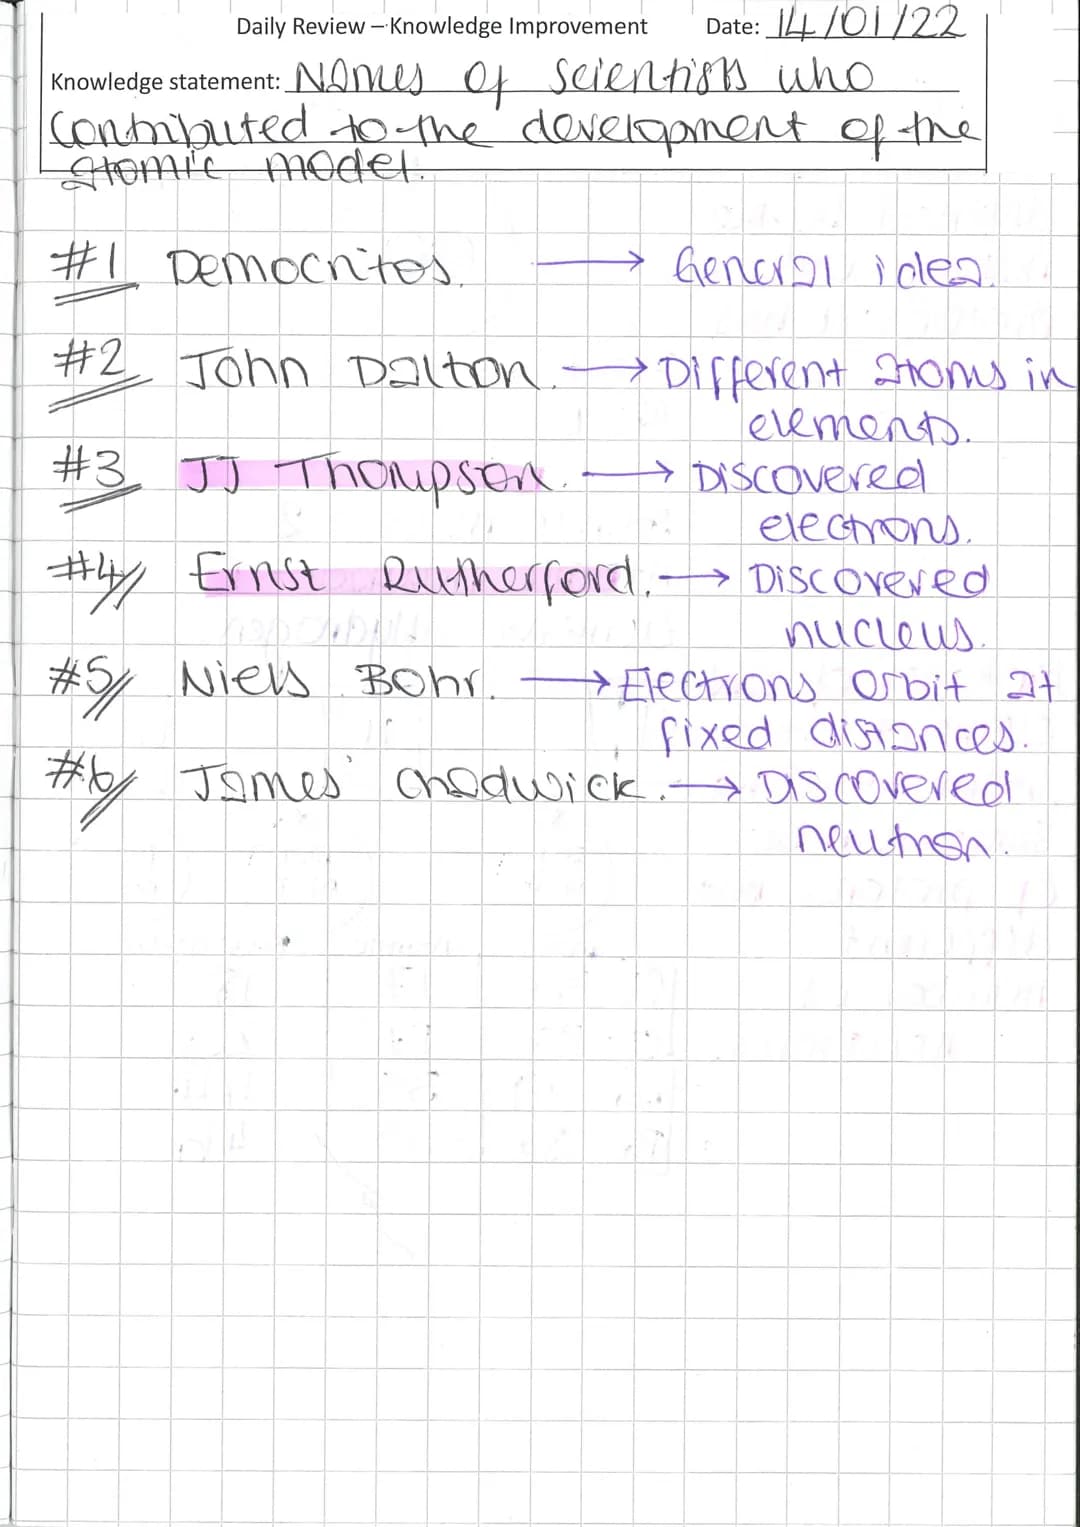 Daily Review – Knowledge Improvement Date: 14/01/22
Knowledge statement: Names of scientists who
contributed to the development of the
atomic model.
#1 Democritos. → General idea.
#2 John Dalton. → Different atoms in
elements.
#3 JJ Thompson. → Discovered
electrons.
#4 Ernst Rutherford. → Discovered
nucleus.
#5 Niels Bohr. → Electrons orbit at
fixed distances.
#6 James Chadwick. → Discovered
neutron.